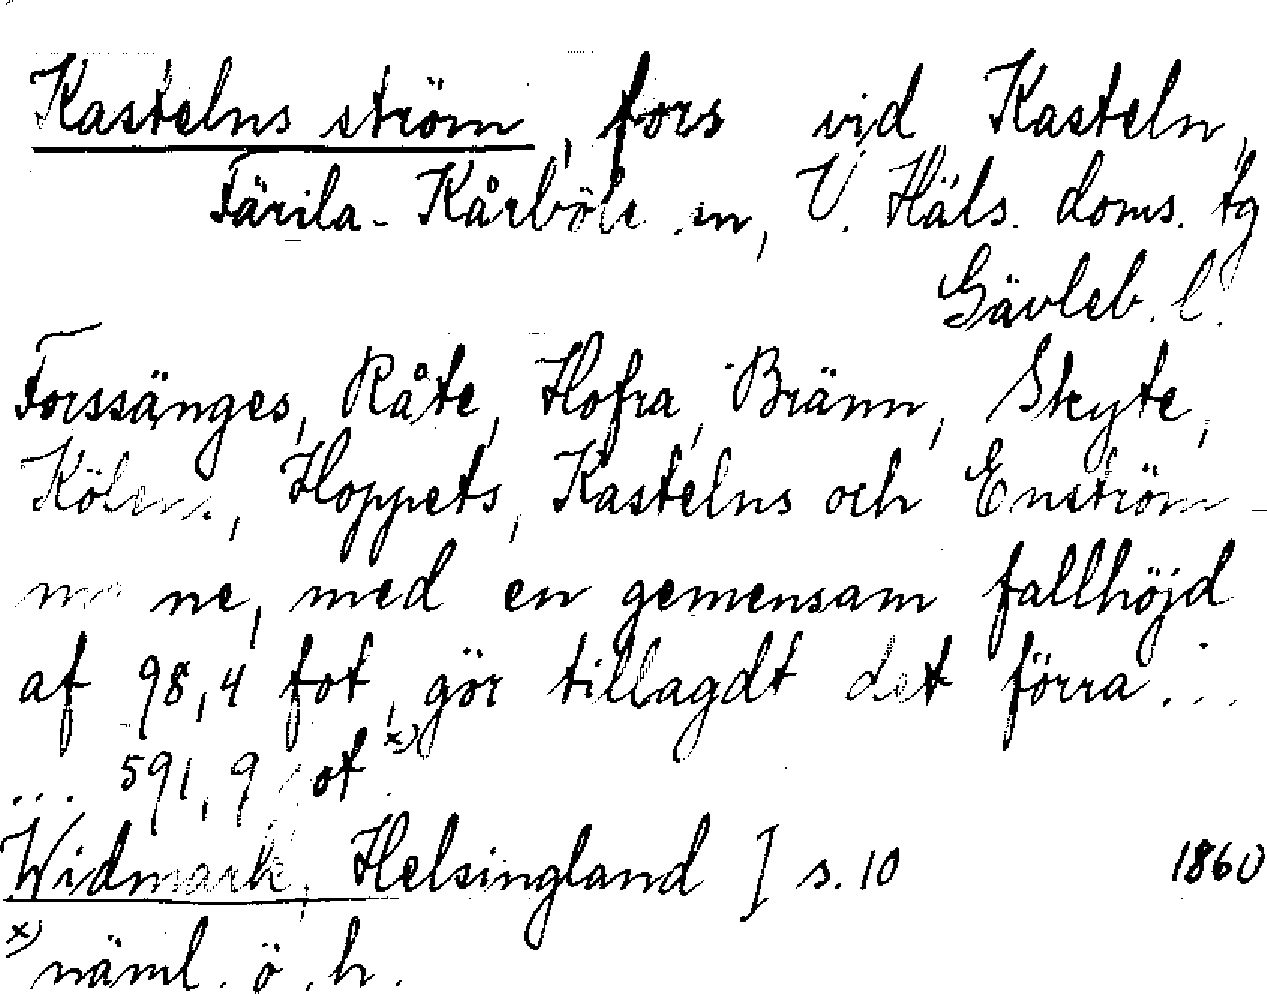 Kastelns ström, fors vid Kasteln,
Färila-Kårböle sn, V. Häls. doms. tg
Gävleb. l.
Forssänges, Råte, Hofra, Bränn, Skyte,
Kölens, Hoppets, Kastelns och Enström-
marne, med en gemensam fallhöjd
af 98,4 fot, gör tillagdt det förra...
... 591,9 fot x)
Widmark, Helsingland I s. 10 1860
x) näml. ö. h.